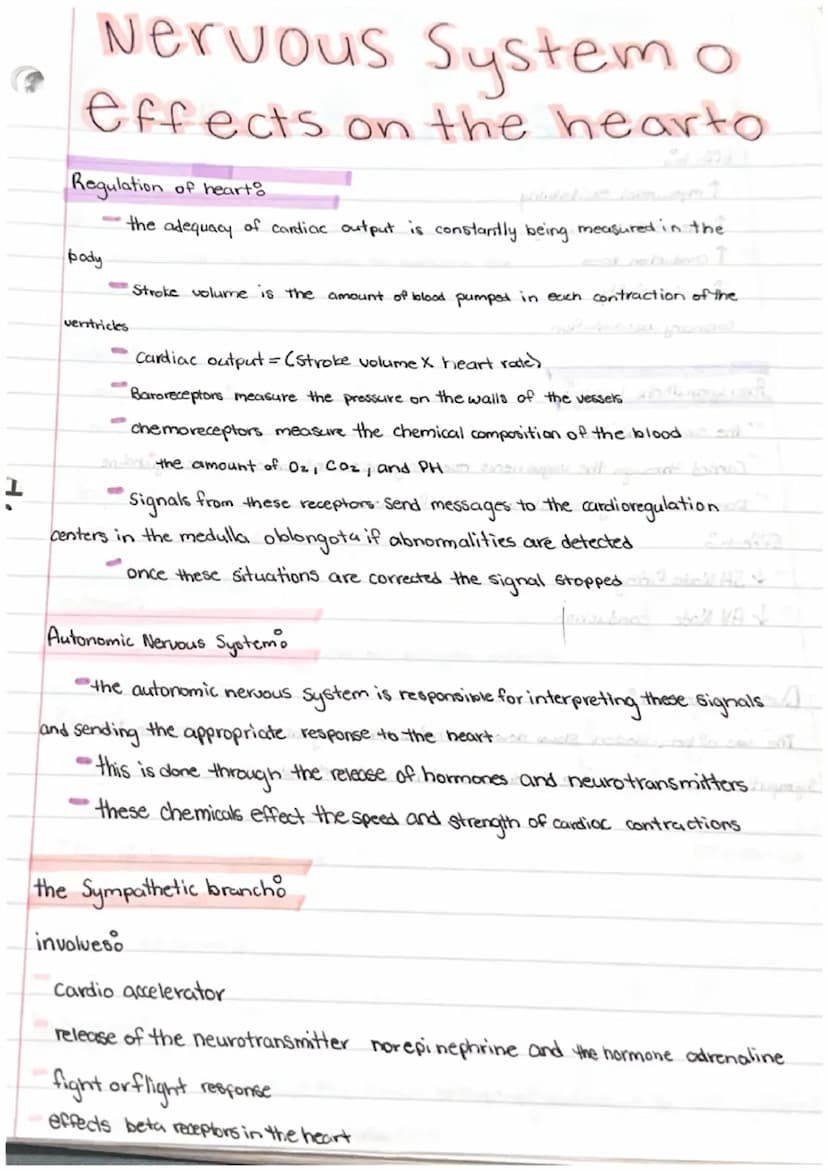 Nervous System
effects on the heart
Regulation of heart:
- the adequacy of cardiac output is constantly being measured in the
body
- Stroke volume is the amount of blood pumped in each contraction of the
ventricles
- Cardiac output = (stroke volume x heart rate)
- Baroreceptors measure the pressure on the walls of the vessels
- chemoreceptors measure the chemical composition of the blood
the amount of O2, CO2, and PH
- Signals from these receptors send messages to the cardioregulation
centers in the medulla oblongota if abnormalities are detected
- once these situations are corrected the signal stopped
Autonomic Nervous System:
- the autonomic nervous system is responsible for interpreting these signals
and sending the appropriate response to the heart
- this is done through the release of hormones and neurotransmitters
- these chemicals effect the speed and strength of cardiac contractions
the Sympathetic branch:
involves:
- Cardio accelerator
- release of the neurotransmitter norepinephrine and the hormone adrenaline
- fight or flight response
- effects beta receptors in the heart